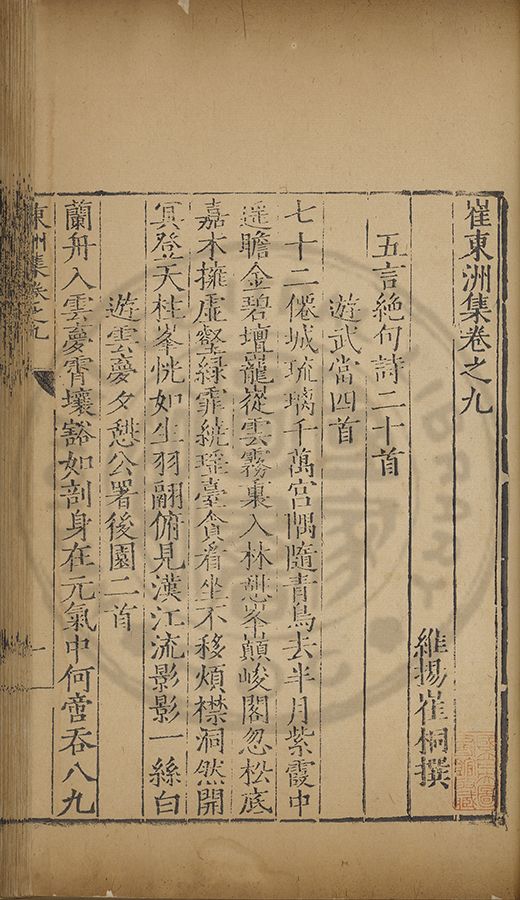 崔東洲集卷之九
維揚崔桐撰
五言絕句詩二十首
遊武當四首
七十二僊城琉璃千萬宮隅隨青鳥去半月紫霞中
遥瞻金碧壇巃嵸雲霧裏入林憇峯巔峻閣忽松底
嘉木擁虛壑綠霏繞瑶臺貪看坐不移煩襟洞然開
冥登天柱峯恍如生羽翮俯見漢江流影影一絲白
遊雲夢夕憇公署後園二首
蘭舟入雲夢霄壤豁如剖身在元氣中何啻吞八九
東洲集卷之九
一